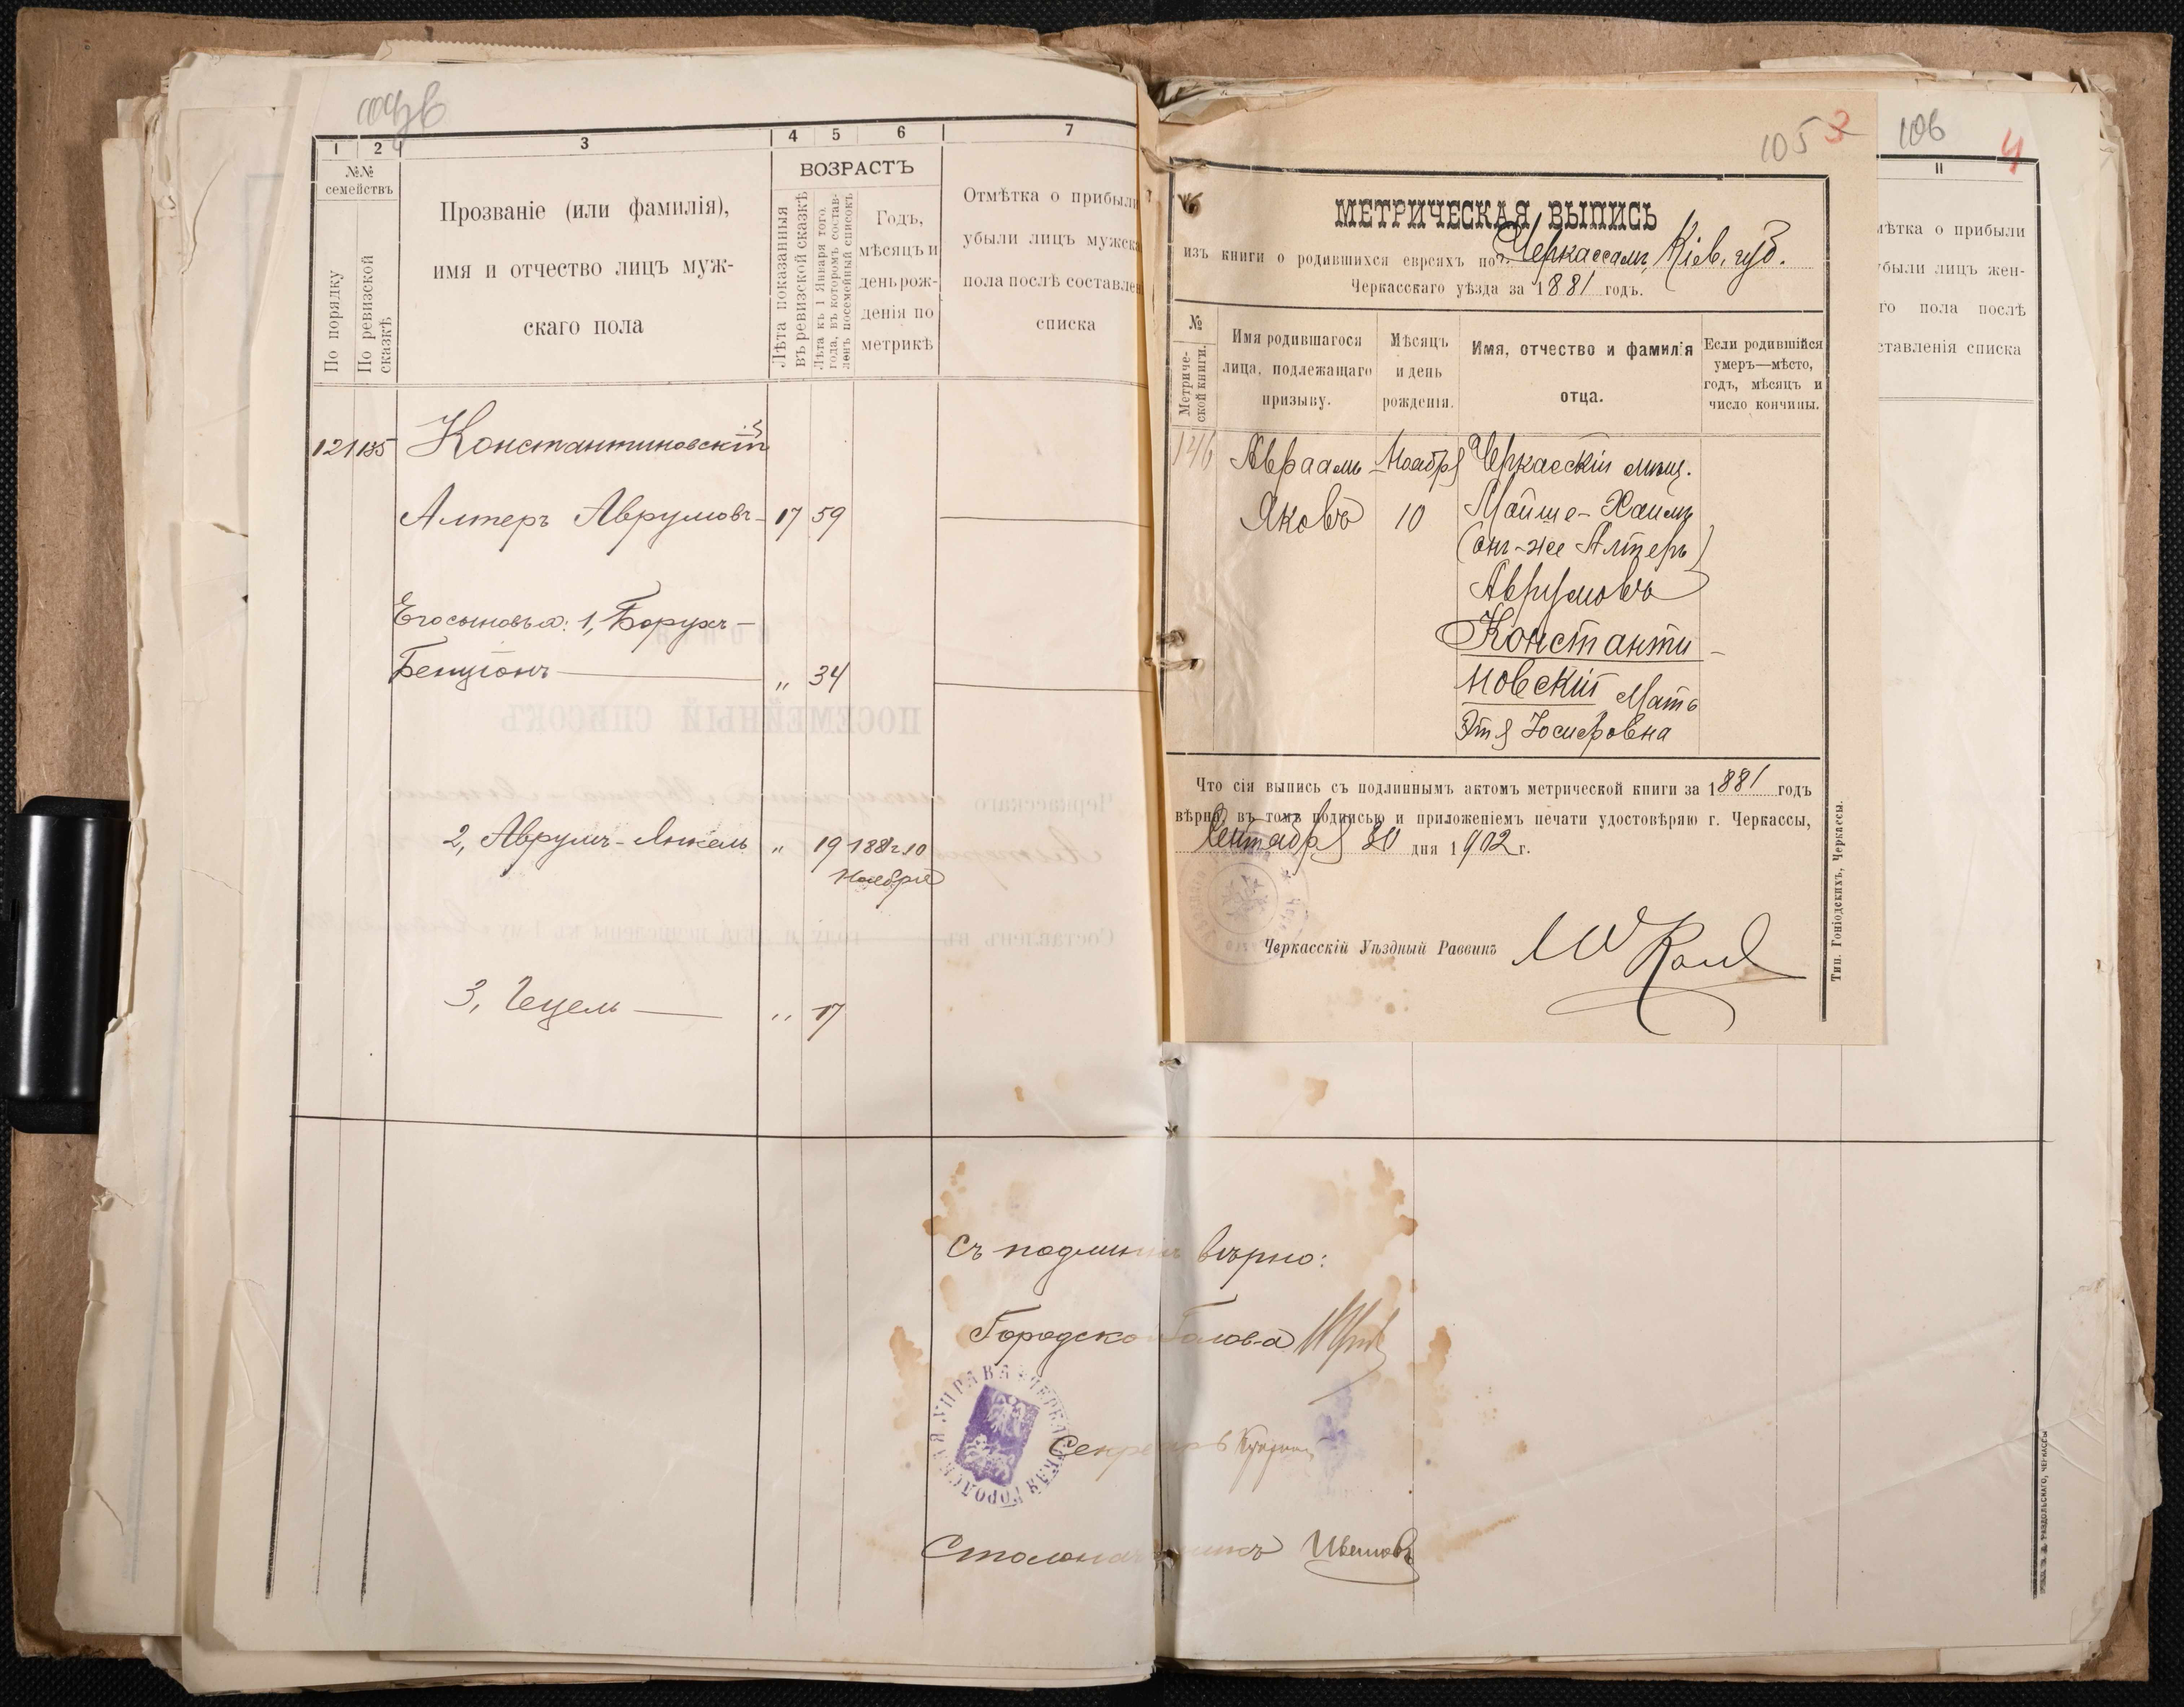 1 2 3 4 5 6 7
№№
семействъ
По порядку
По ревизской
сказкѣ
Прозваніе (или фамилія),
имя и отчество лицъ муж-
скаго пола
ВОЗРАСТЪ
Лѣта показанныя
въ ревизской сказкѣ
Лѣта къ 1 Января того
года, въ которомъ состав-
ленъ посемейный списокъ
Годъ,
мѣсяцъ и
день рож-
денія по
метрикѣ
Отмѣтка о прибыли
убыли лицъ мужска
пола послѣ составле
списка
121 135 Константиновскій
Алтеръ Аврумовъ 17 59
Его сыновья: 1, Борухъ-
Бенціонъ „ 34
2, Аврумъ-Янкель „ 19 1881 г. 10
Ноября
3, Гецель „ 17
Съ подлин вѣрно:
Городско Голова
ГОРОДСКАЯ УПРАВА ЧЕРКАССКАЯ
Секре ръ
Столона никъ Ивановъ
105 3
МЕТРИЧЕСКАЯ ВЫПИСЬ
изъ книги о родившихся евреяхъ по г. Черкассамъ, Кіев. губ.
Черкасскаго уѣзда за 1881 годъ.
№
Метриче-
ской книги.
Имя родившагося
лица, подлежащаго
призыву.
Мѣсяцъ
и день
рожденія.
Имя, отчество и фамилія
отца.
Если родившійся
умеръ—мѣсто,
годъ, мѣсяцъ и
число кончины.
146 Авраамъ- Ноября Черкасскій мѣщ.
Яковъ 10 Мойше-Хаимъ
(онъ-же Алтеръ)
Аврумовъ
Константи-
новскій Мать
Этя Іосифовна
Что сія выпись съ подлиннымъ актомъ метрической книги за 1881 годъ
вѣрна, въ томъ подписью и приложеніемъ печати удостовѣряю г. Черкассы,
Сентября 30 дня 1902 г.
Черкасскій Уѣздный Раввинъ
Тип. Гоніодскихъ, Черкассы.
106 4
11
мѣтка о прибыли
убыли лицъ жен-
го пола послѣ
ставленія списка